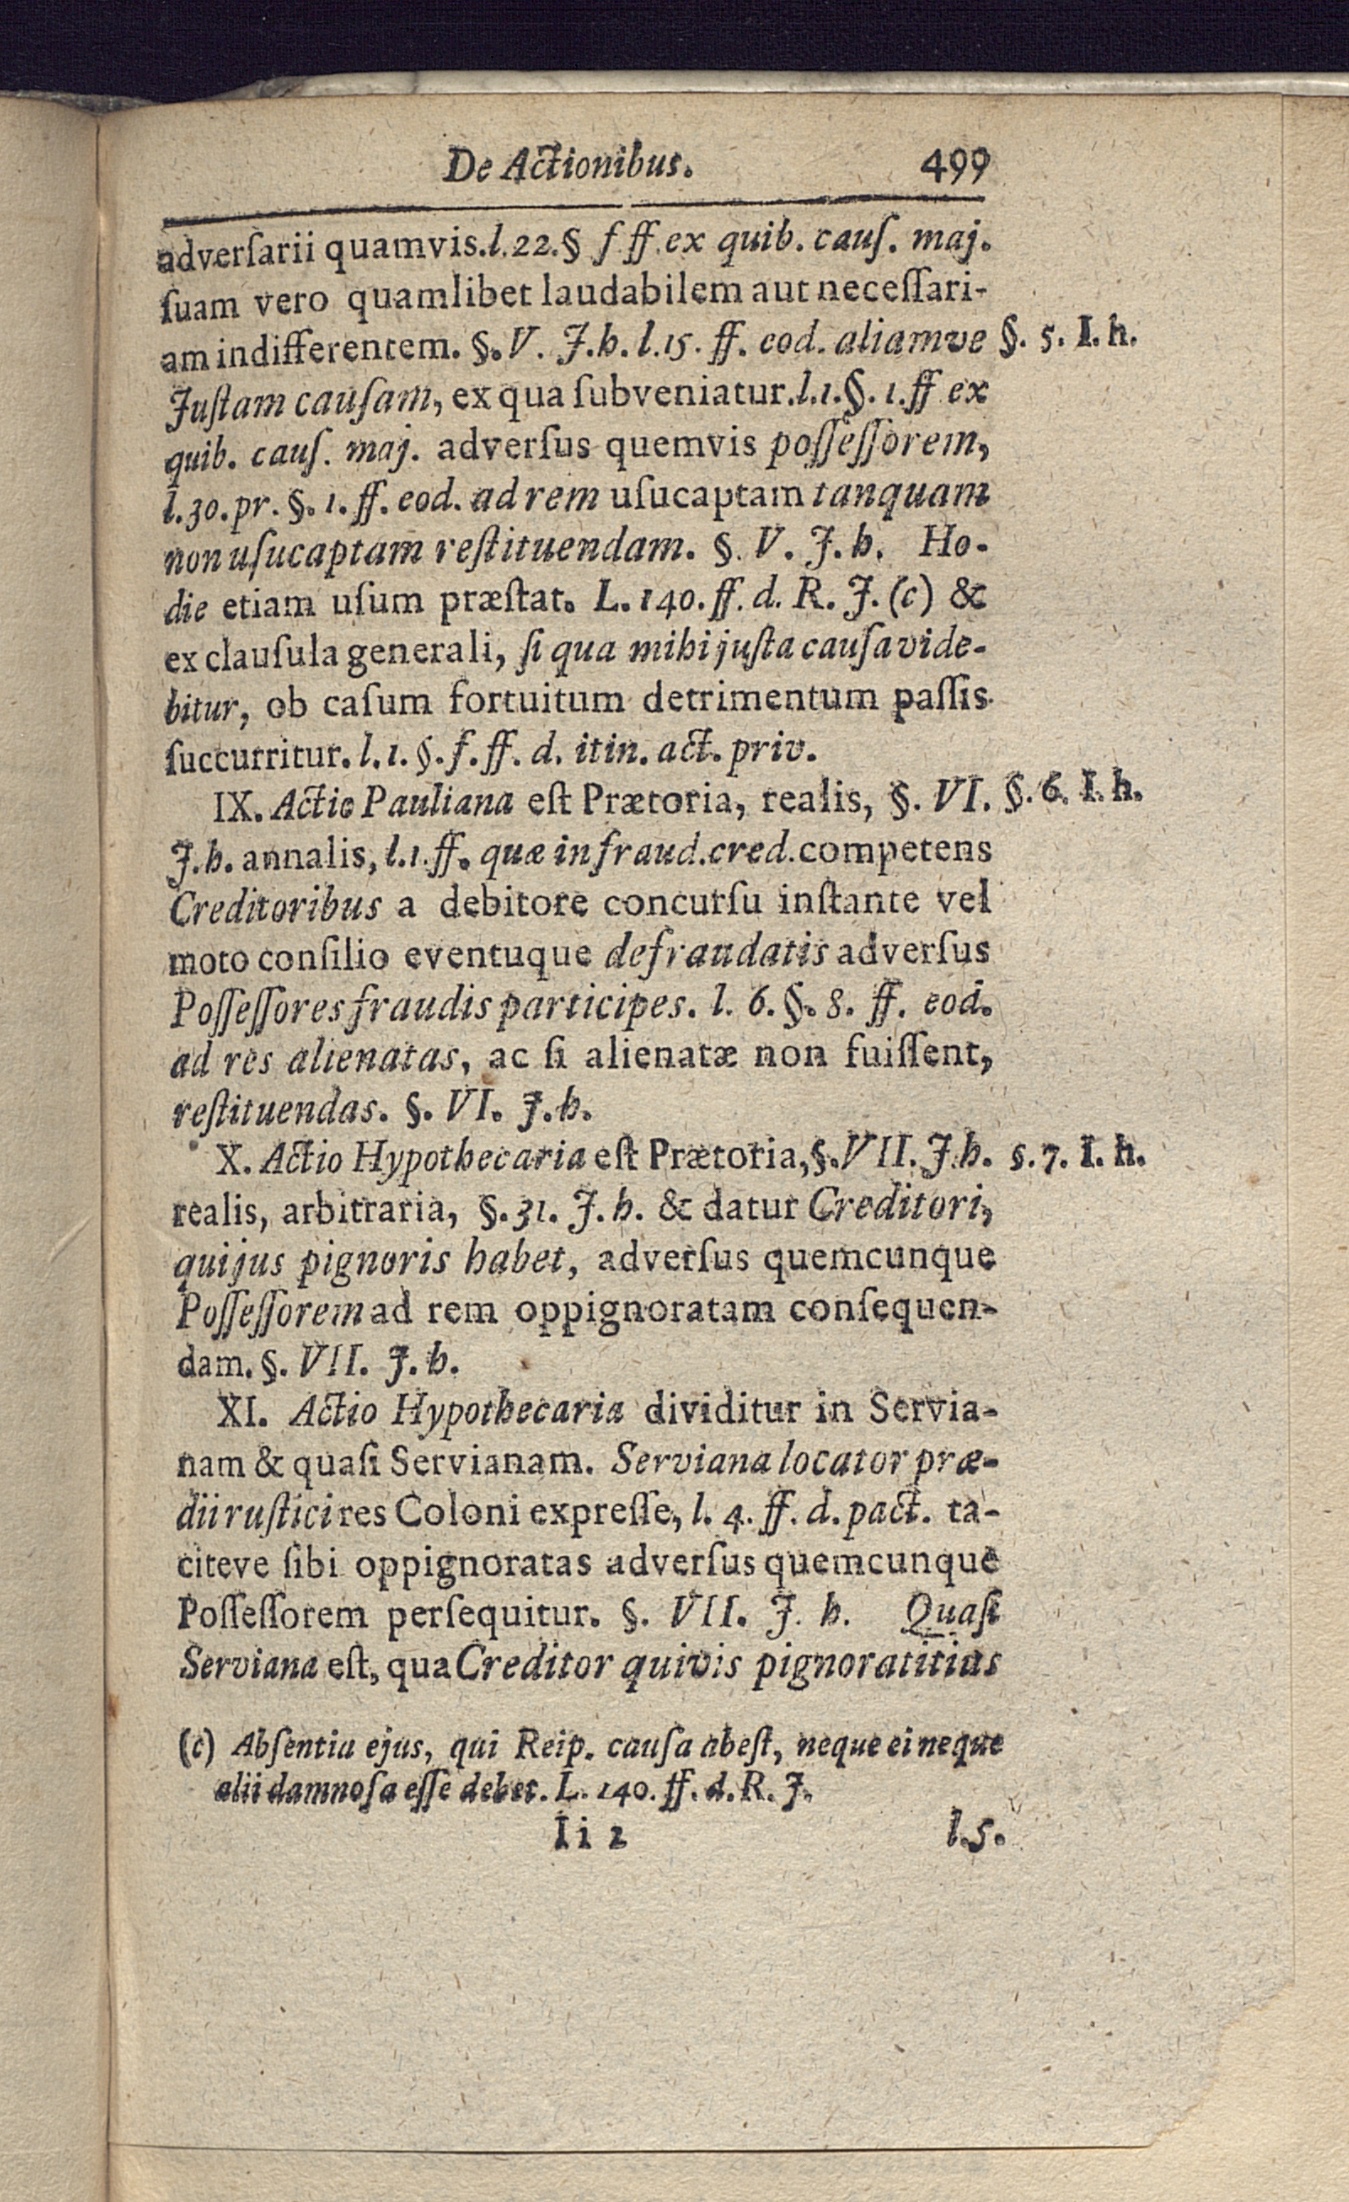 De Actionibus. 499
adverſarii quamvis.l.22.§ f ff.ex quib. cauſ. maj.
ſuam vero quamlibet laudabilem aut neceſſari-
am indifferentem. §. V. J.h. l.15. ff. eod. aliamve §. 5. I. h.
Juſtam cauſam, ex qua ſubveniatur.l.1.§. 1.ff ex
quib. cauſ. maj. adverſus quemvis poſſeſſorem,
l.30.pr. §. 1. ff. eod. ad rem uſucaptam tanquam
non uſucaptam reſtituendam. §. V. J. h. Ho-
die etiam uſum præſtat. L. 140. ff. d. R. J. (c) &
ex clauſula generali, ſi qua mihi juſta cauſa vide-
bitur, ob caſum fortuitum detrimentum paſſis
ſuccurritur. l. 1. §. f. ff. d. itin. act. priv.
IX. Actio Pauliana eſt Prætoria, realis, §. VI. §. 6. I. h.
J.h. annalis, l.1.ff. quæ in fraud.cred.competens
Creditoribus a debitore concurſu inſtante vel
moto conſilio eventuque defraudatis adverſus
Poſſeſſores fraudis participes. l. 6. §. 8. ff. eod.
ad res alienatas, ac ſi alienatæ non fuiſſent,
reſtituendas. §. VI. J. h.
X. Actio Hypothecaria eſt Prætoria,§. VII. J.h. s. 7. I. h.
realis, arbitraria, §. 31. J. h. & datur Creditori,
qui jus pignoris habet, adverſus quemcunque
Poſſeſſorem ad rem oppignoratam conſequen-
dam. §. VII. J. h.
XI. Actio Hypothecaria dividitur in Servia-
nam & quaſi Servianam. Serviana locator præ-
dii ruſtici res Coloni expreſſe, l. 4. ff. d. pact. ta-
citeve ſibi oppignoratas adverſus quemcunque
Poſſeſſorem perſequitur. §. VII. J. h. Quaſi
Serviana eſt, qua Creditor quivis pignoratitius
(c) Abſentia ejus, qui Reip. cauſa abeſt, neque ei neque
alii damnoſa eſſe debet. L. 140. ff. d. R. J.
I i 2 l.5.